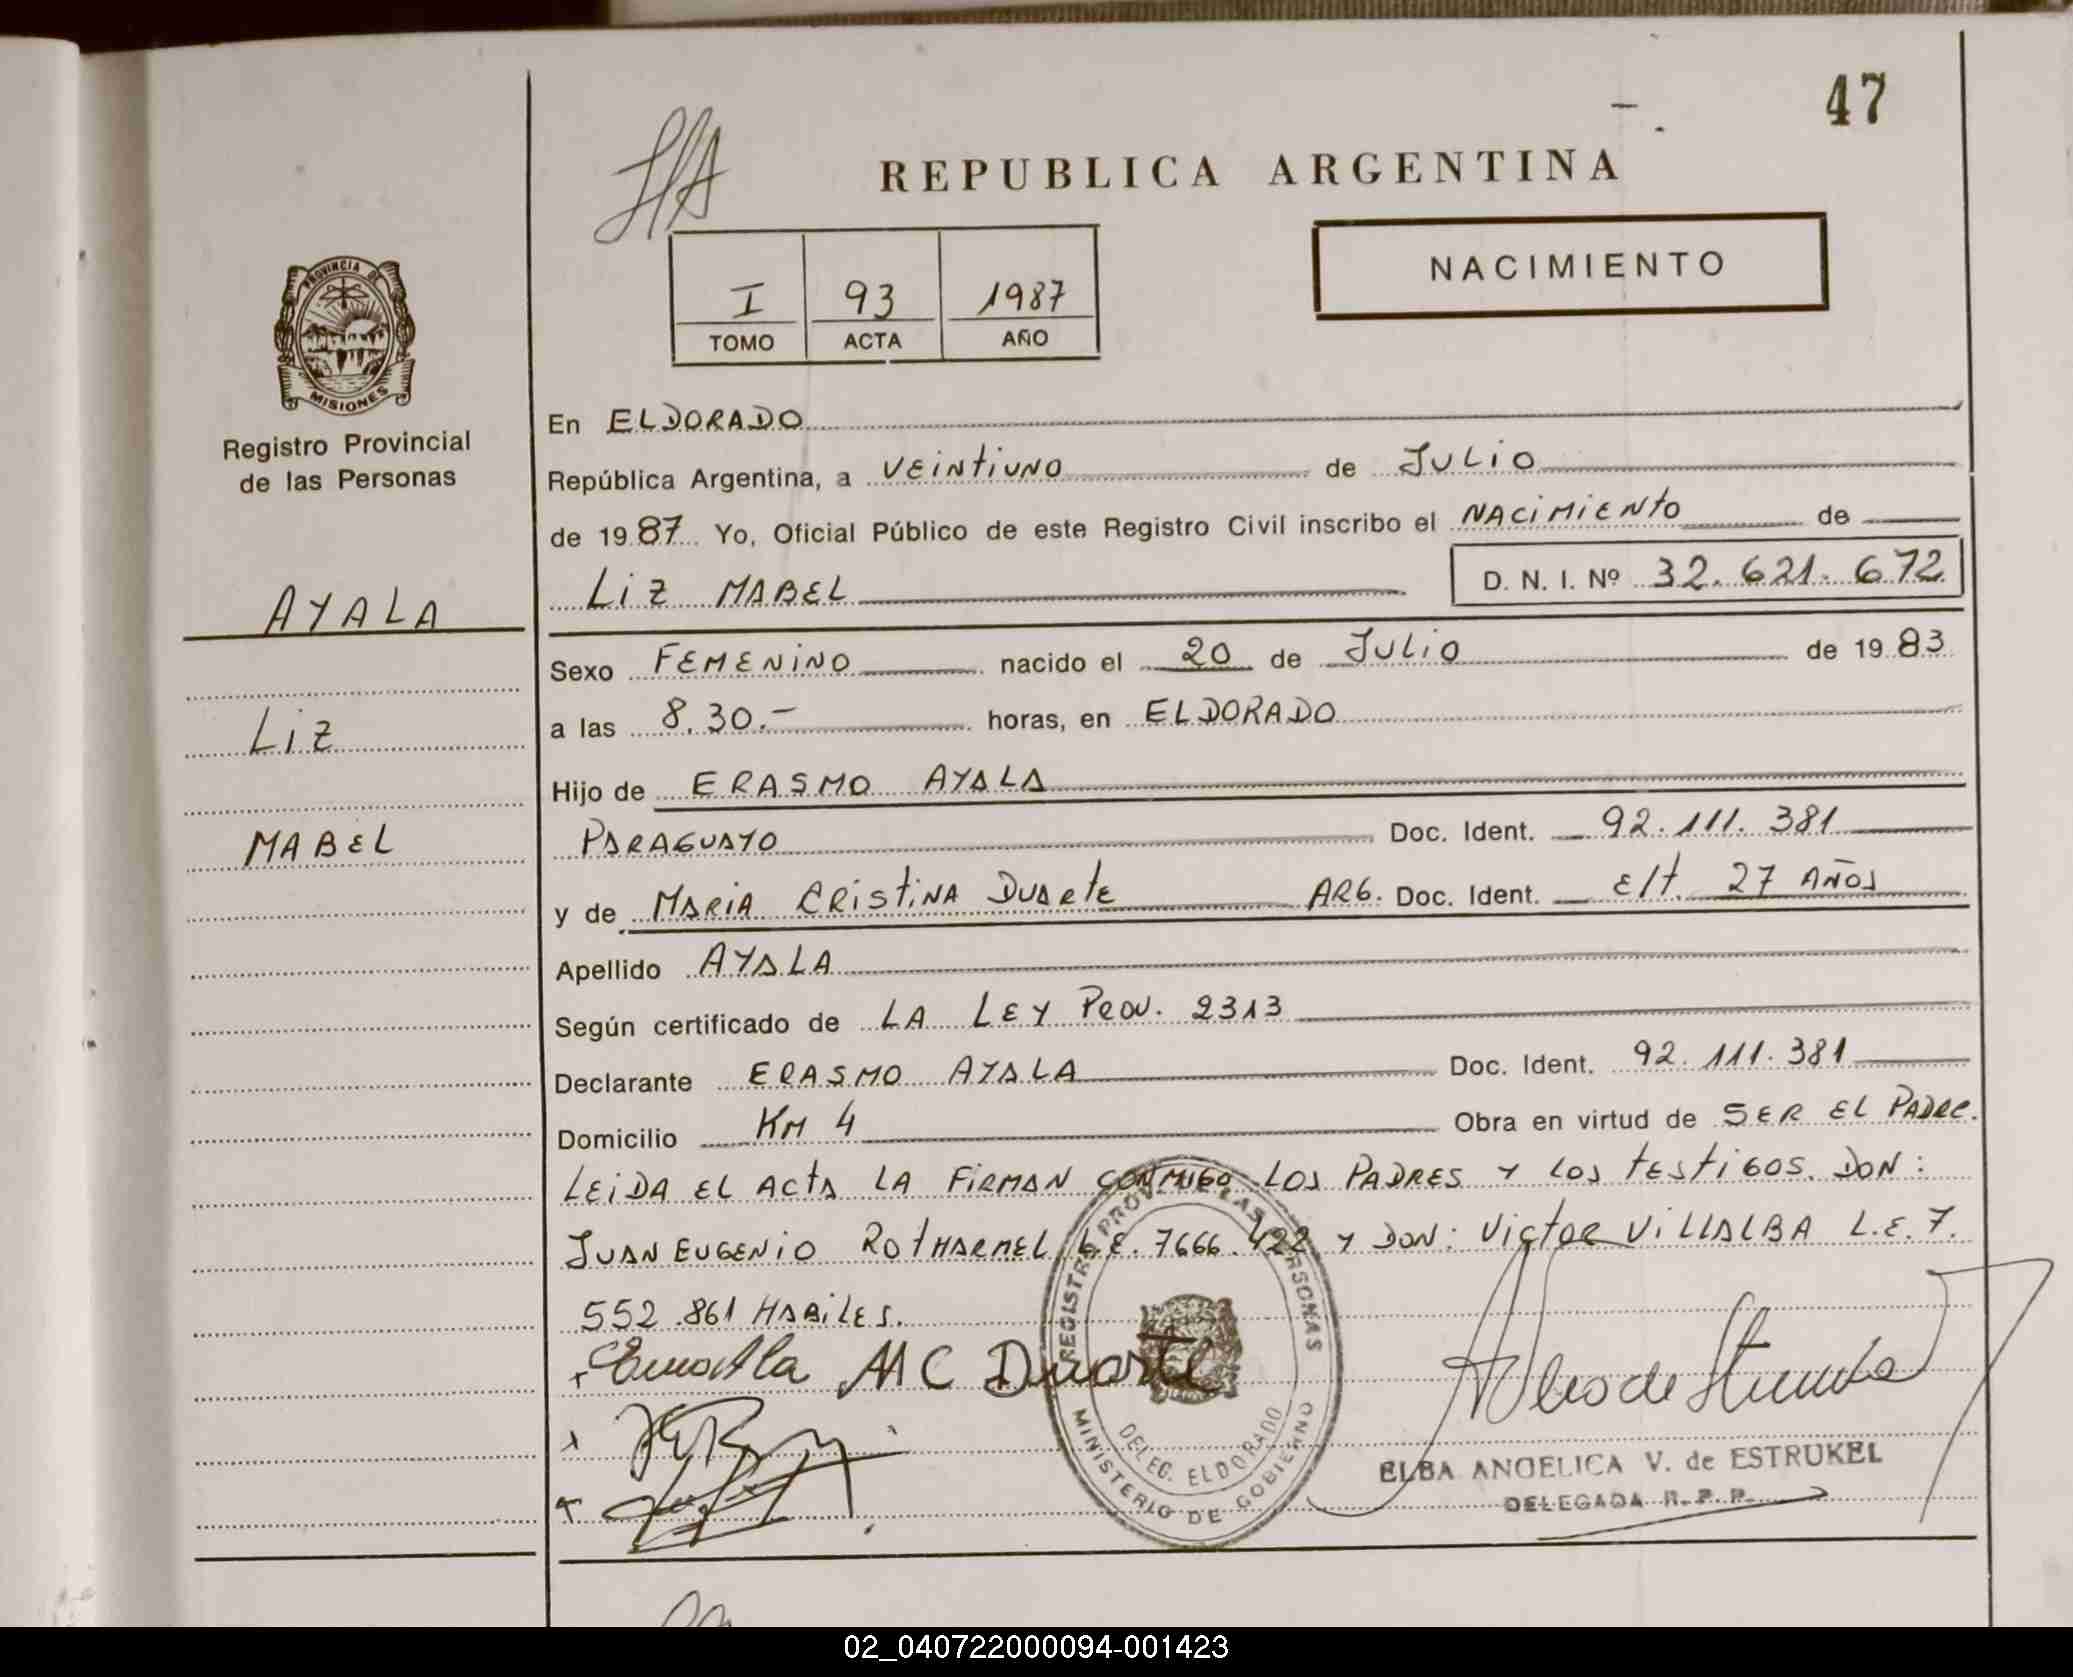 47
REPUBLICA ARGENTINA
NACIMIENTO
I 93 1987
TOMO ACTA AÑO
PROVINCIA DE
MISIONES
Registro Provincial
de las Personas
AYALA
Liz
MABEL
En ELDORADO
República Argentina, a VEINTIUNO de JULIO
de 1987 Yo, Oficial Público de este Registro Civil inscribo el NACIMIENTO de
Liz MABEL D. N. I. Nº 32.621.672
Sexo FEMENINO nacido el 20 de JULIO de 1983
a las 8.30.- horas, en ELDORADO
Hijo de ERASMO AYALA
PARAGUAYO Doc. Ident. 92.111.381
y de MARIA CRISTINA DUARTE ARG. Doc. Ident. E/T. 27 AÑOS
Apellido AYALA
Según certificado de LA LEY PROV. 2313
Declarante ERASMO AYALA Doc. Ident. 92.111.381
Domicilio KM 4 Obra en virtud de SER EL PADRE.
LEIDA EL ACTA LA FIRMAN CONMIGO LOS PADRES Y LOS TESTIGOS. DON:
JUAN EUGENIO ROTHARMEL L.E. 7666.422 Y DON: VICTOR VILLALBA L.E. 7.
552.861 HABILES.
MC Duarte
REGISTRO PROV. DE LAS PERSONAS
DELEG. ELDORADO
MINISTERIO DE GOBIERNO
ELBA ANGELICA V. de ESTRUKEL
DELEGADA R.P.P.
02_040722000094-001423